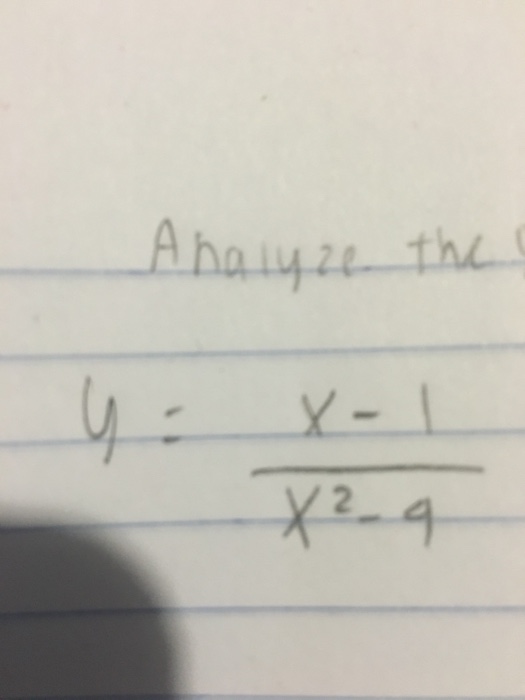 Analyze the
y = x - 1
x² - 9